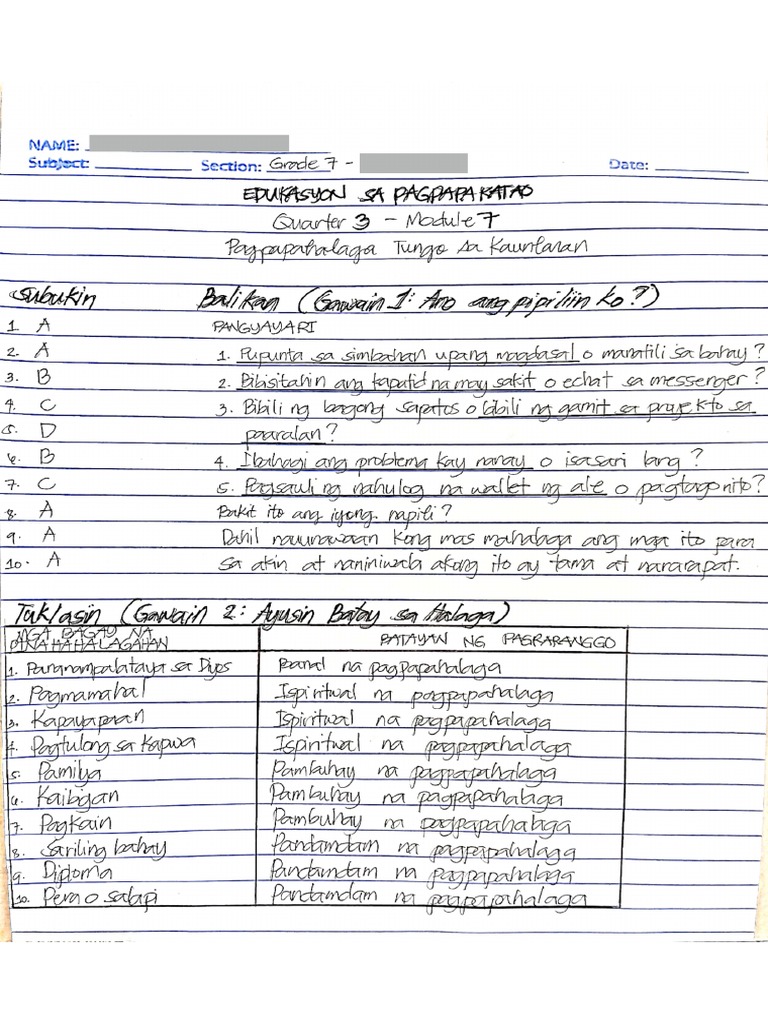 NAME:
Subject: Section: Grade 7 - Date:
EDUKASYON SA PAGPAPAKATAO
Quarter 3 - Module 7
Pagpapahalaga Tungo sa Kaunlaran
Subukin
1. A
2. A
3. B
4. C
5. D
6. B
7. C
8. A
9. A
10. A
Balikan (Gawain 1: Ano ang pipiliin ko?)
PANGYAYARI
1. Pupunta sa simbahan upang magdasal o manatili sa bahay?
2. Bibisitahin ang kapatid na may sakit o echat sa messenger?
3. Bibili ng bagong sapatos o bibili ng gamit sa proyekto sa
paaralan?
4. Ibahagi ang problema kay nanay o isasari lang?
5. Pagsauli ng nahulog na wallet ng ale o pagtago nito?
Bakit ito ang iyong napili?
Dahil nauunawaan kong mas mahalaga ang mga ito para
sa akin at naniniwala akong ito ay tama at nararapat.
Tuklasin (Gawain 2: Ayusin Batay sa Halaga)
MGA BAGAY NA
PINAHAHALAGAHAN
BATAYAN NG PAGRARANGGO
1. Pananampalataya sa Diyos Banal na pagpapahalaga
2. Pagmamahal Ispiritwal na pagpapahalaga
3. Kapayapaan Ispiritwal na pagpapahalaga
4. Pagtulong sa kapwa Ispiritwal na pagpapahalaga
5. Pamilya Pambuhay na pagpapahalaga
6. Kaibigan Pambuhay na pagpapahalaga
7. Pagkain Pambuhay na pagpapahalaga
8. Sariling bahay Pandamdam na pagpapahalaga
9. Diploma Pandamdam na pagpapahalaga
10. Pera o salapi Pandamdam na pagpapahalaga